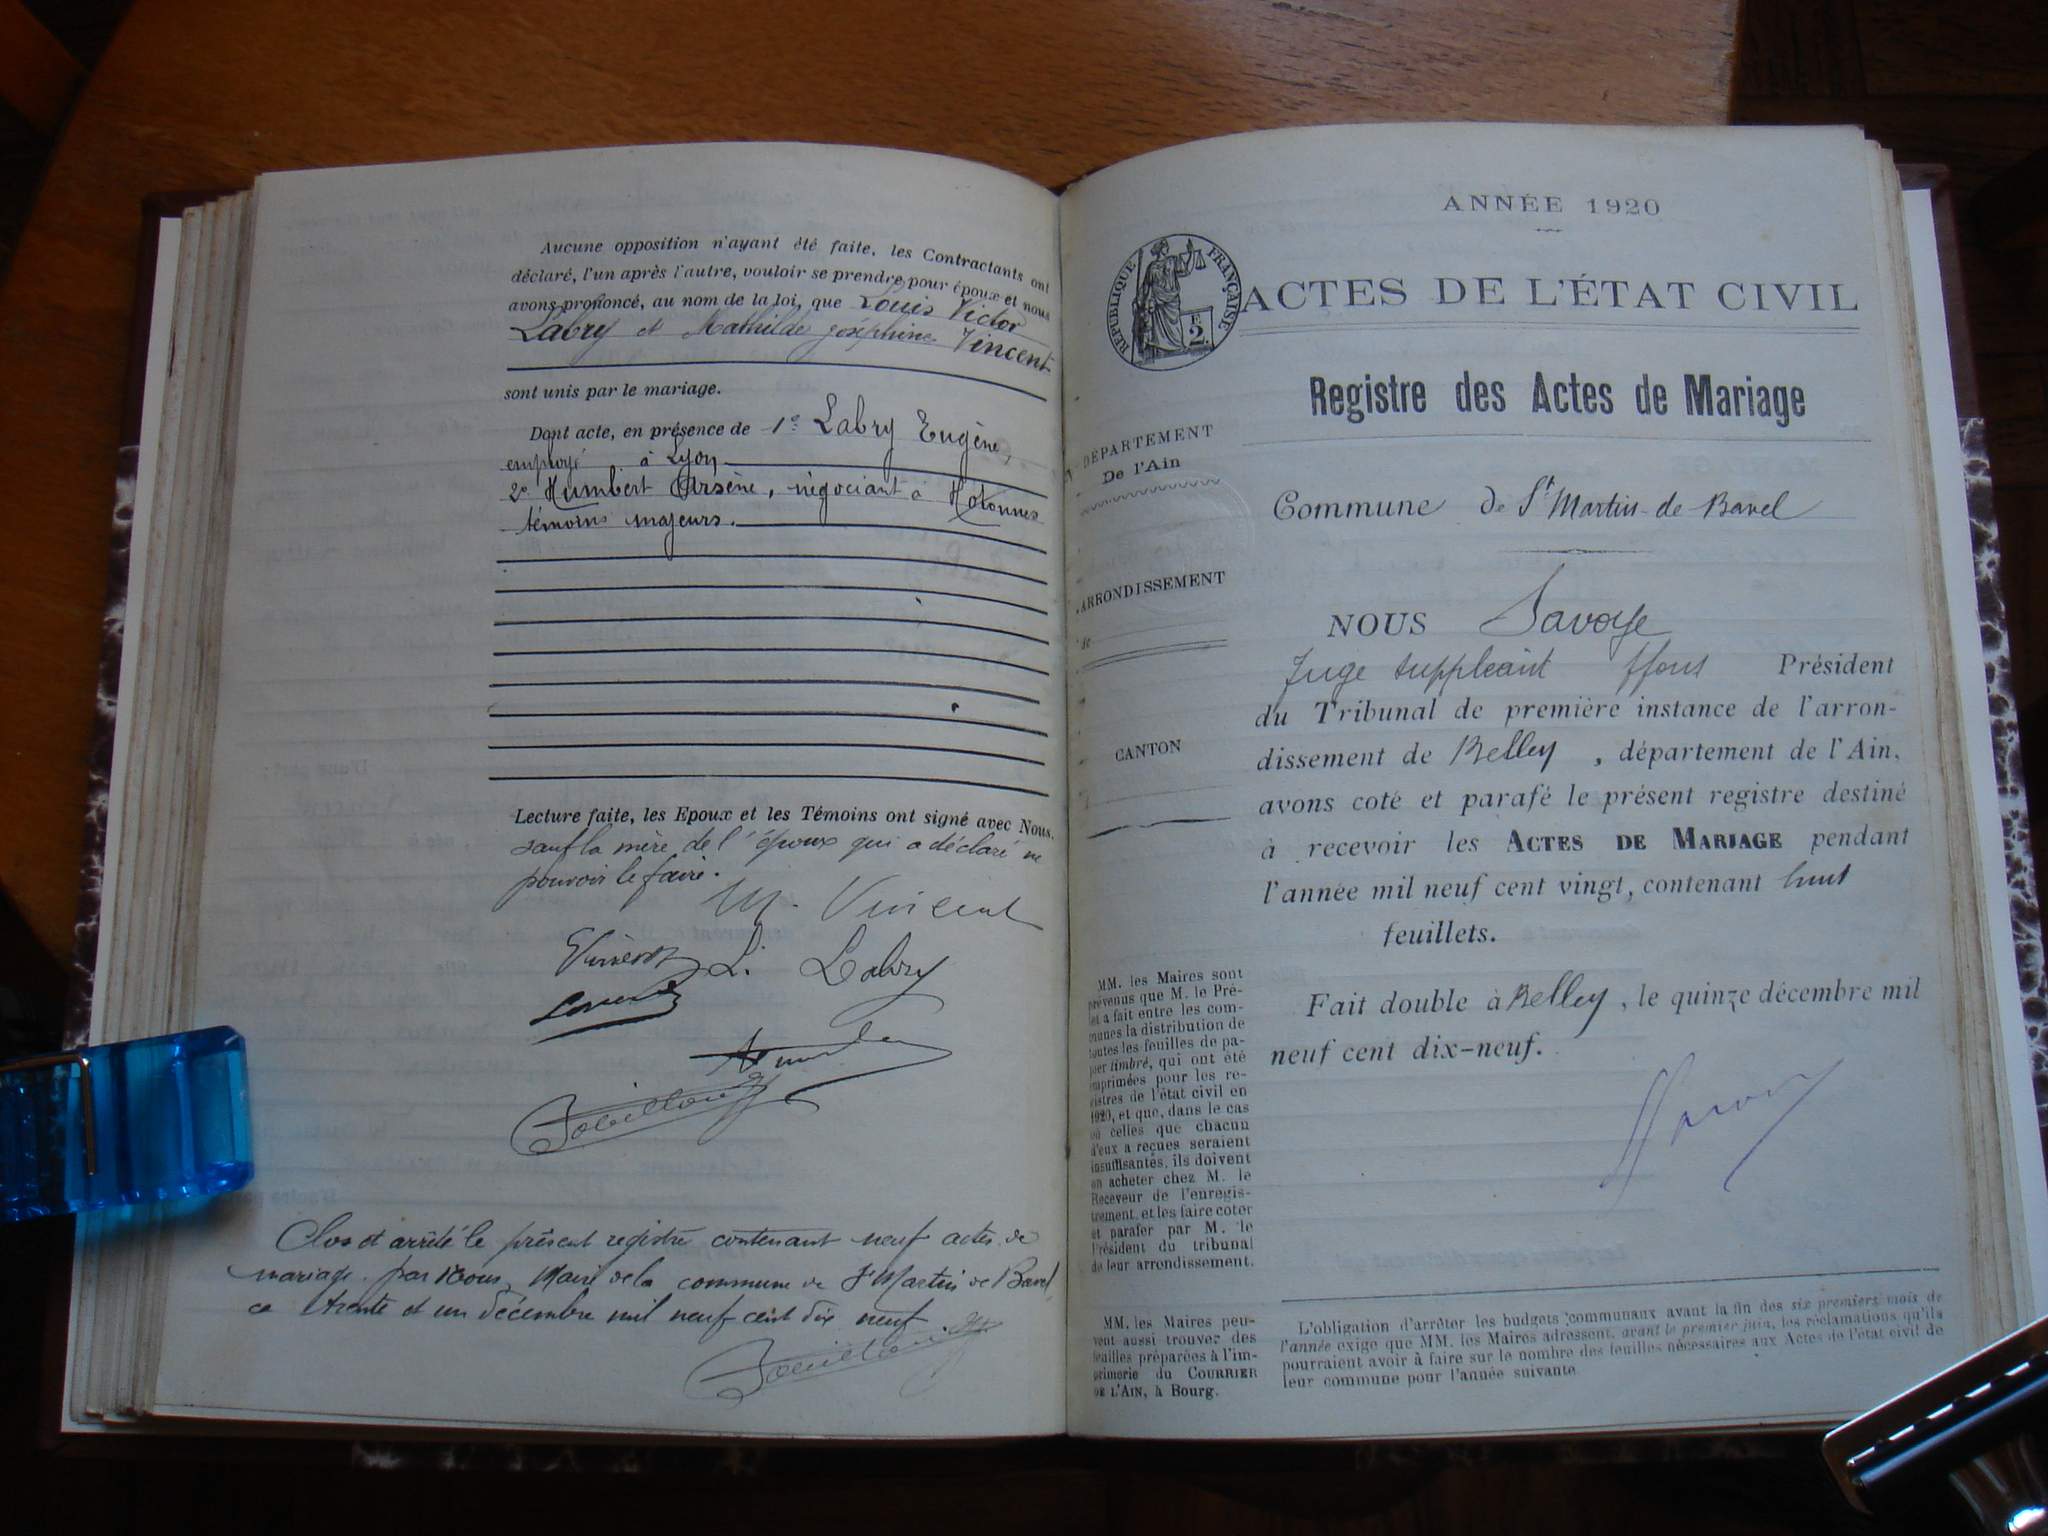 Aucune opposition n'ayant été faite, les Contractants ont
déclaré, l'un après l'autre, vouloir se prendre pour époux et nous
avons prononcé, au nom de la loi, que Louis Victor
Labry et Mathilde Joséphine Vincent
sont unis par le mariage.
Dont acte, en présence de 1º Labry Eugène,
employé à Lyon
2º Humbert Arsène, négociant à Hotonnes
témoins majeurs.
Lecture faite, les Epoux et les Témoins ont signé avec Nous.
sauf la mère de l'époux qui a déclaré ne
pouvoir le faire.
M. Vincent
L. Labry
Clos et arrêté le présent registre contenant neuf actes de
mariage par Nous, Maire de la commune de St Martin de Bavel
ce trente et un décembre mil neuf cent dix neuf
ANNÉE 1920
RÉPUBLIQUE FRANÇAISE
E
2.
ACTES DE L'ÉTAT CIVIL
Registre des Actes de Mariage
DÉPARTEMENT
De l'Ain
ARRONDISSEMENT
de
CANTON
Commune de St Martin-de-Bavel
NOUS Savoye
Juge suppléant ffons Président
du Tribunal de première instance de l'arron-
dissement de Belley, département de l'Ain,
avons coté et parafé le présent registre destiné
à recevoir les ACTES DE MARIAGE pendant
l'année mil neuf cent vingt, contenant huit
feuillets.
Fait double à Belley, le quinze décembre mil
neuf cent dix-neuf.
MM. les Maires sont
prévenus que M. le Pré-
fet a fait entre les com-
munes la distribution de
toutes les feuilles de pa-
pier timbré, qui ont été
imprimées pour les re-
gistres de l'état civil en
1920, et que, dans le cas
où celles que chacun
d'eux a reçues seraient
insuffisantes, ils doivent
en acheter chez M. le
Receveur de l'enregis-
trement, et les faire coter
et parafer par M. le
Président du tribunal
de leur arrondissement.
MM. les Maires peu-
vent aussi trouver des
feuilles préparées à l'im-
primerie du COURRIER
DE L'AIN, à Bourg.
L'obligation d'arrêter les budgets communaux avant la fin des six premiers mois de
l'année exige que MM. les Maires adressent, avant le premier juin, les réclamations qu'ils
pourraient avoir à faire sur le nombre des feuilles nécessaires aux Actes de l'état civil de
leur commune pour l'année suivante.